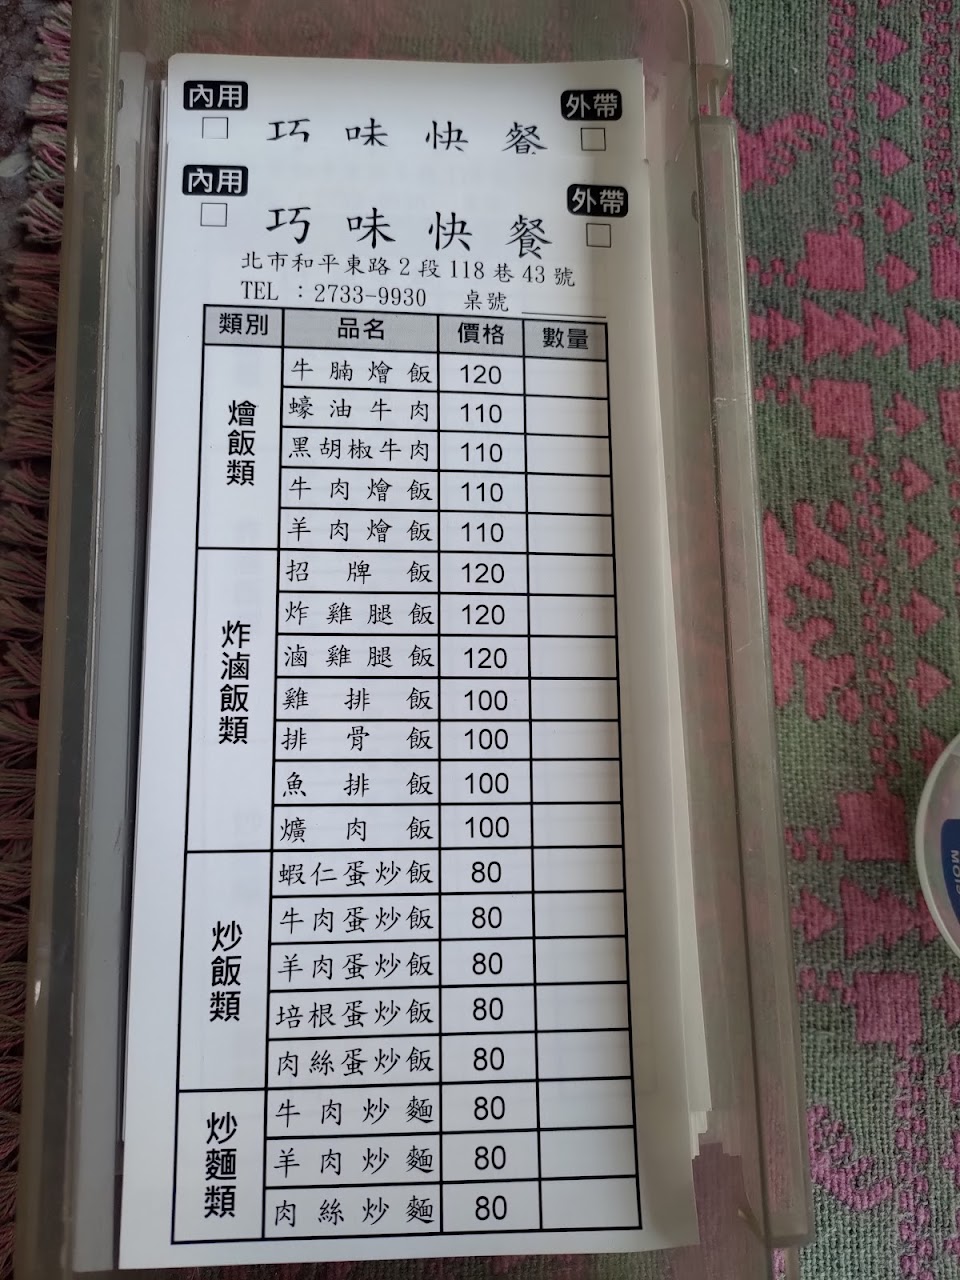 內用 外帶
巧味快餐
內用 外帶
巧味快餐
北市和平東路2段118巷43號
TEL：2733-9930 桌號
類別 品名 價格 數量
燴飯類
牛腩燴飯 120
蠔油牛肉 110
黑胡椒牛肉 110
牛肉燴飯 110
羊肉燴飯 110
炸滷飯類
招牌飯 120
炸雞腿飯 120
滷雞腿飯 120
雞排飯 100
排骨飯 100
魚排飯 100
爌肉飯 100
炒飯類
蝦仁蛋炒飯 80
牛肉蛋炒飯 80
羊肉蛋炒飯 80
培根蛋炒飯 80
肉絲蛋炒飯 80
炒麵類
牛肉炒麵 80
羊肉炒麵 80
肉絲炒麵 80